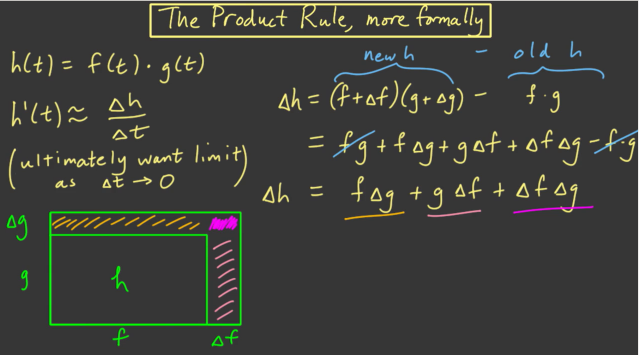 The Product Rule, more formally
h(t) = f(t) · g(t)
h'(t) ≈ Δh / Δt
(ultimately want limit
as Δt → 0)
new h - old h
Δh = (f+Δf)(g+Δg) - f·g
= fg + fΔg + gΔf + ΔfΔg - f·g
Δh = fΔg + gΔf + ΔfΔg
Δg
g
h
f
Δf